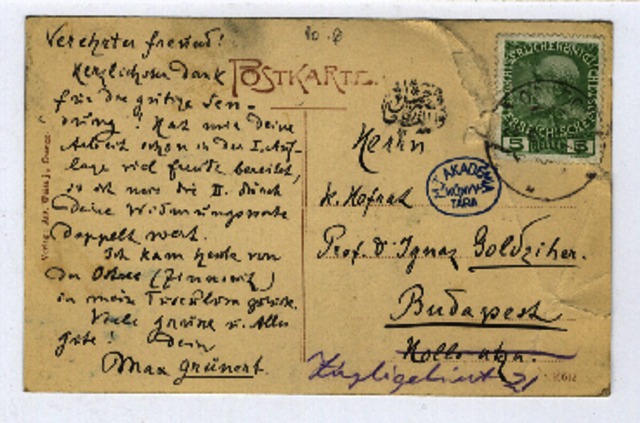 10.8
Verehrter Freund!
Herzlichsten Dank
für die gütige Sen-
dung! Hat mir deine
Arbeit schon in der I. Auf-
lage viel Freude bereitet,
so ist mir die II. durch
deine Widmungsworte
doppelt wert.
Ich kam heute von
der Ostsee (Zinnowitz)
in mein Tusculum zurück.
Viele Grüsse u. Alles
Gute! Dein
Max Grünert.
POSTKARTE.
Herrn
k. Hofrat
Prof. Dr Ignaz Goldziher.
Budapest
Hollo utza.
21
M. T. AKADÉMIA
KÖNYV-
TÁRA
5 HELLER 5